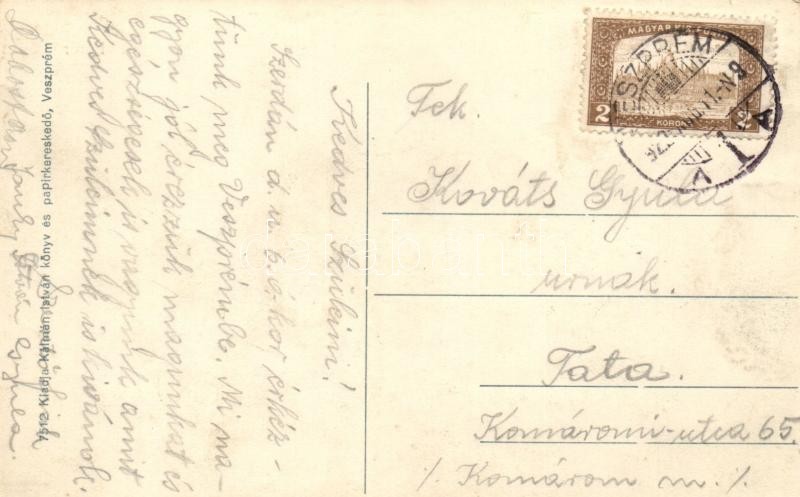 Kedves Szüleim!
Szerdán d. u. 6 ó.kor érkez-
tünk meg Veszprémbe. Mi na-
gyon jól érezzük magunkat és
egészségesek is vagyunk amit
Kedves Szüleimnek is kívánok.
István
7512 Kiadja Kálmán István könyv és papirkereskedő, Veszprém
MAGYAR KIR. POSTA
2
KORONA
2
VESZPRÉM
Tek.
Kováts Gyula
urnak.
Tata.
Komáromi-utca 65.
/. Komárom m. /.